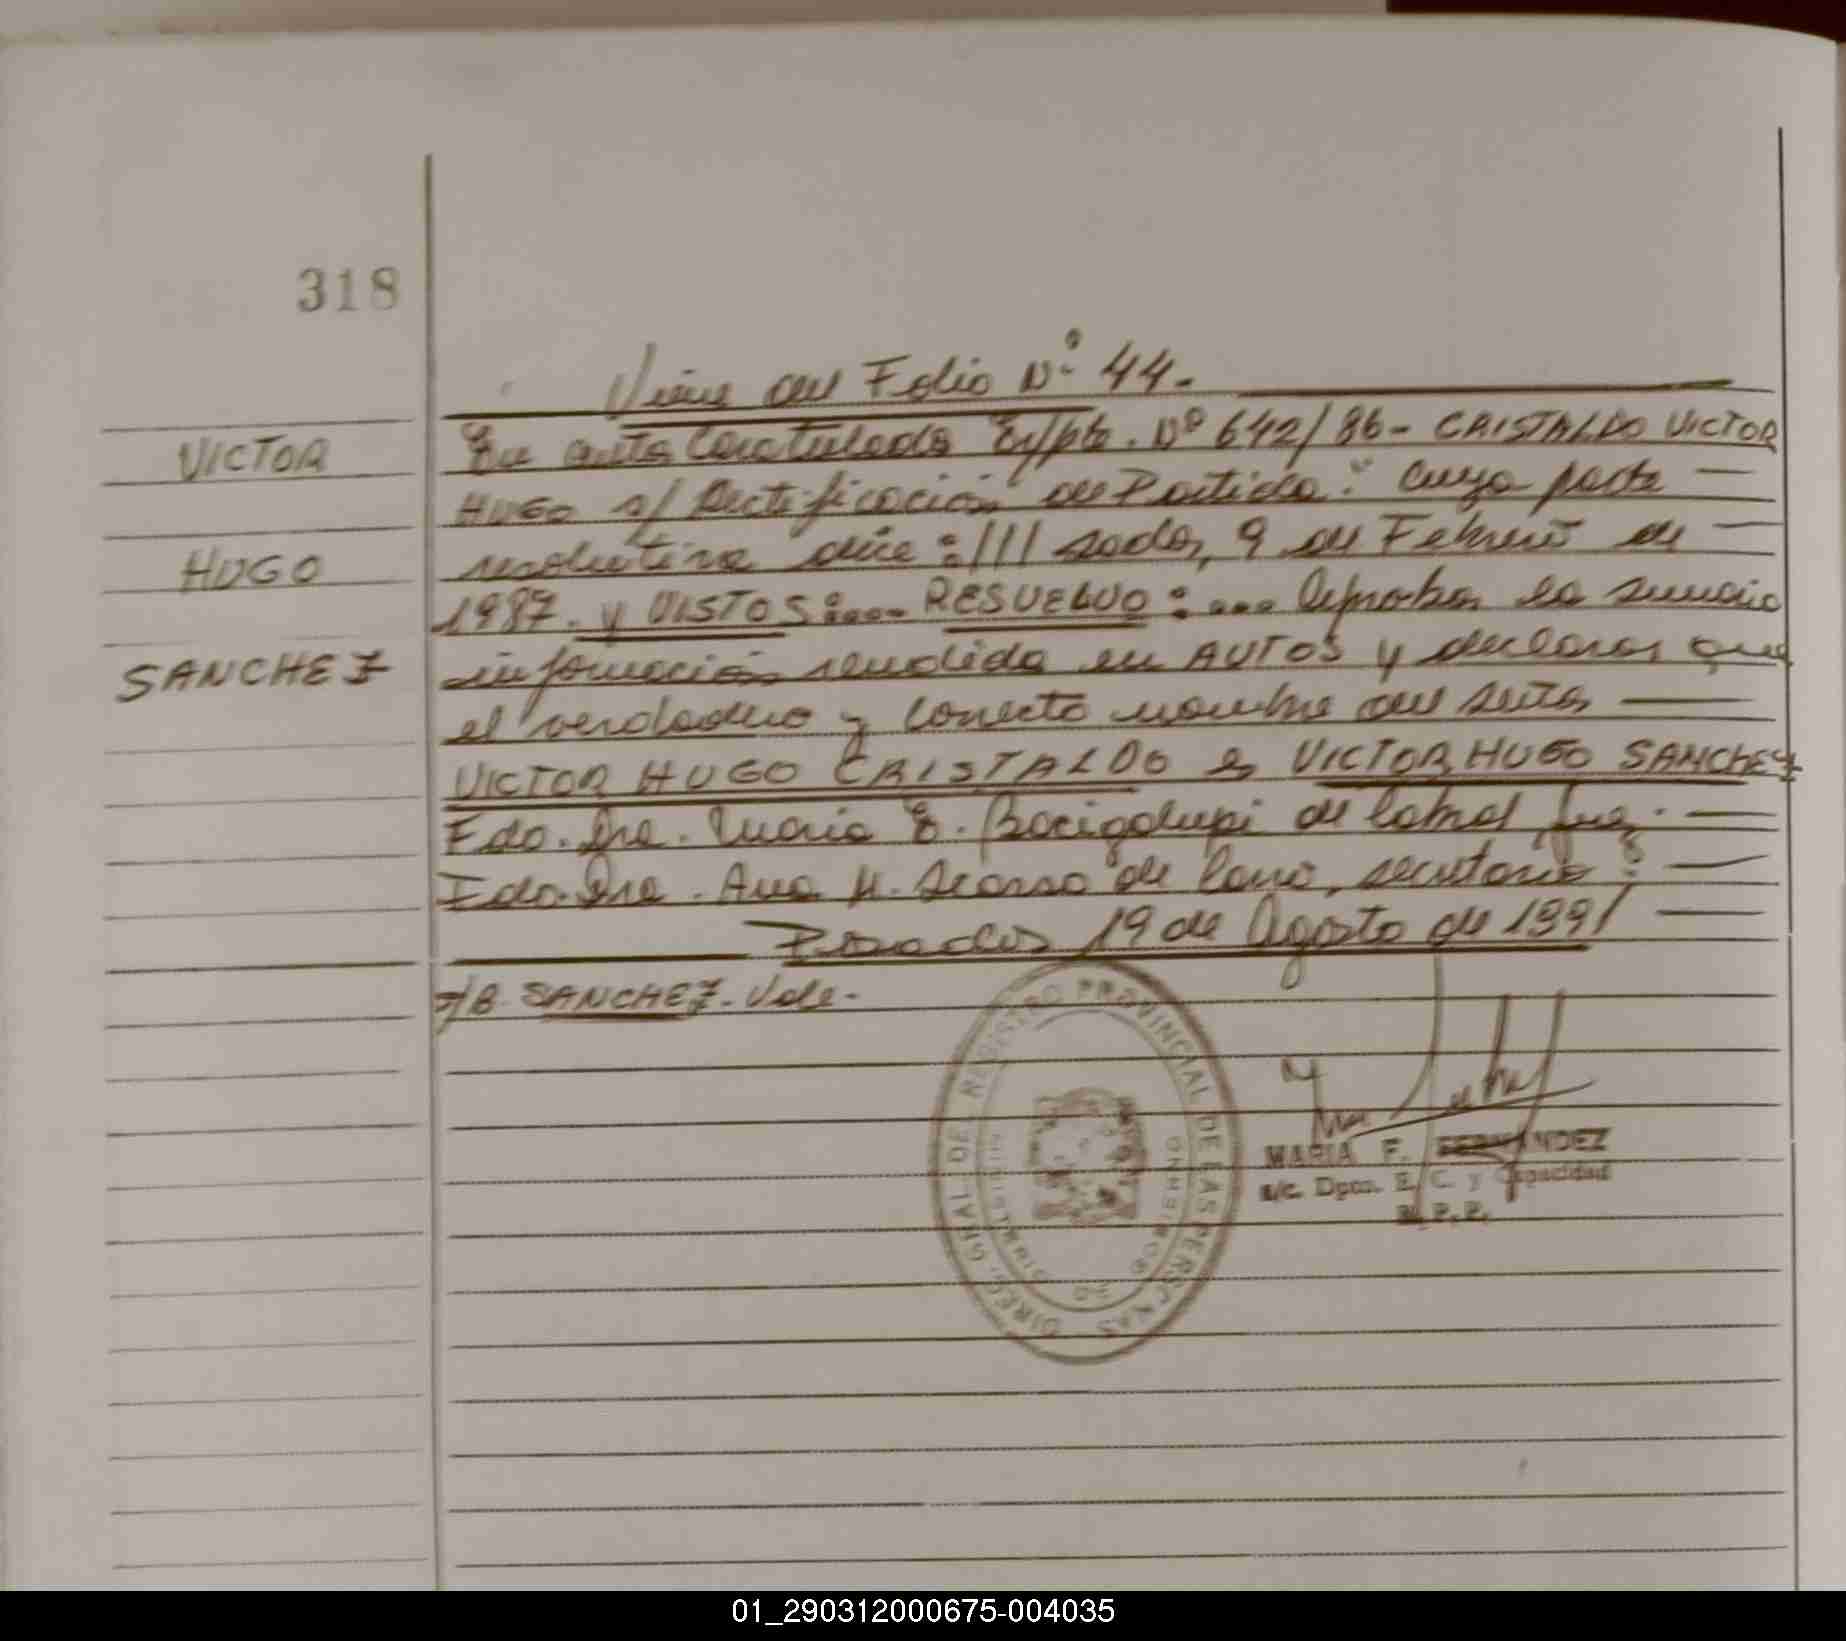 318
Viene del Folio Nº 44.
VICTOR
HUGO
SANCHEZ
En autos Caratulados Expte. Nº 642/86- CRISTALDO VICTOR
HUGO s/ Rectificación de Partida." Cuya parte
resolutiva dice: ///sadas, 9 de Febrero de
1987. y VISTOS:.... RESUELVO: .... Aprobar la sumaria
información rendida en AUTOS y declarar que
el verdadero y correcto nombre del autor
VICTOR HUGO CRISTALDO es VICTOR HUGO SANCHEZ
Fdo. Dra. Maria E. Bacigalupi de Juez.
Fdo. Dra. Ana H. de secretaria
Posadas 19 de Agosto de 1991
SANCHEZ. Vale-
DIREC. GRAL. DEL REGISTRO PROVINCIAL DE LAS PERSONAS
MINISTERIO DE GOBIERNO
MARIA F. FERNANDEZ
a/c. Dpto. E. C. y Capacidad
R. P. P.
01_290312000675-004035